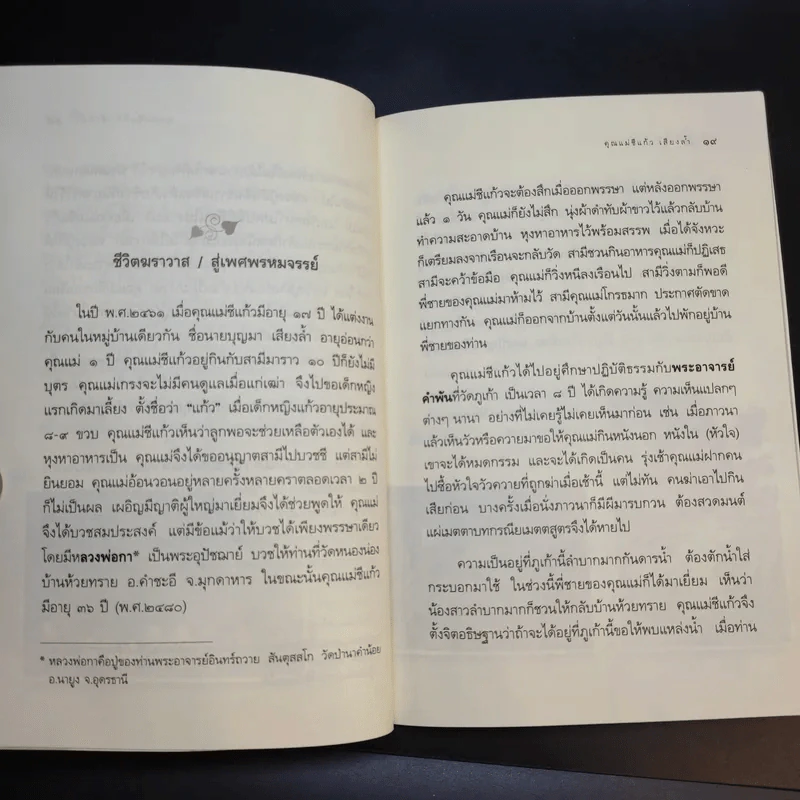 ชีวิตฆราวาส / สู่เพศพรหมจรรย์
ในปี พ.ศ.๒๔๖๑ เมื่อคุณแม่ชีแก้วมีอายุ ๑๗ ปี ได้แต่งงาน
กับคนในหมู่บ้านเดียวกัน ชื่อนายบุญมา เสียงล้ำ อายุอ่อนกว่า
คุณแม่ ๑ ปี คุณแม่ชีแก้วอยู่กินกับสามีมาราว ๑๐ ปีก็ยังไม่มี
บุตร คุณแม่เกรงจะไม่มีคนดูแลเมื่อแก่เฒ่า จึงไปขอเด็กหญิง
แรกเกิดมาเลี้ยง ตั้งชื่อว่า “แก้ว” เมื่อเด็กหญิงแก้วอายุประมาณ
๘-๙ ขวบ คุณแม่ชีแก้วเห็นว่าลูกพอจะช่วยเหลือตัวเองได้ และ
หุงหาอาหารเป็น คุณแม่จึงได้ขออนุญาตสามีไปบวชชี แต่สามีไม่
ยินยอม คุณแม่อ้อนวอนอยู่หลายครั้งหลายคราตลอดเวลา ๒ ปี
ก็ไม่เป็นผล เผอิญมีญาติผู้ใหญ่มาเยี่ยมจึงได้ช่วยพูดให้ คุณแม่
จึงได้บวชสมประสงค์ แต่มีข้อแม้ว่าให้บวชได้เพียงพรรษาเดียว
โดยมีหลวงพ่อกา* เป็นพระอุปัชฌาย์ บวชให้ท่านที่วัดหนองน่อง
บ้านห้วยทราย อ.คำชะอี จ.มุกดาหาร ในขณะนั้นคุณแม่ชีแก้ว
มีอายุ ๓๖ ปี (พ.ศ.๒๔๘๐)
* หลวงพ่อกาคือปู่ของท่านพระอาจารย์อินทร์ถวาย สันตุสสโก วัดป่านาคำน้อย
อ.นายูง จ.อุดรธานี
คุณแม่ชีแก้ว เสียงล้ำ ๑๙
คุณแม่ชีแก้วจะต้องสึกเมื่อออกพรรษา แต่หลังออกพรรษา
แล้ว ๑ วัน คุณแม่ก็ยังไม่สึก นุ่งผ้าดำทับผ้าขาวไว้แล้วกลับบ้าน
ทำความสะอาดบ้าน หุงหาอาหารไว้พร้อมสรรพ เมื่อได้จังหวะ
ก็เตรียมลงจากเรือนจะกลับวัด สามีชวนกินอาหารคุณแม่ก็ปฏิเสธ
สามีจะคว้าข้อมือ คุณแม่ก็วิ่งหนีลงเรือนไป สามีวิ่งตามก็พอดี
พี่ชายของคุณแม่มาห้ามไว้ สามีคุณแม่โกรธมาก ประกาศตัดขาด
แยกทางกัน คุณแม่ก็ออกจากบ้านตั้งแต่วันนั้นแล้วไปพักอยู่บ้าน
พี่ชายของท่าน
คุณแม่ชีแก้วได้ไปอยู่ศึกษาปฏิบัติธรรมกับพระอาจารย์
คำพันที่วัดภูเก้า เป็นเวลา ๘ ปี ได้เกิดความรู้ ความเห็นแปลกๆ
ต่างๆ นานา อย่างที่ไม่เคยรู้ไม่เคยเห็นมาก่อน เช่น เมื่อภาวนา
แล้วเห็นวัวหรือควายมาขอให้คุณแม่กินหนังนอก หนังใน (หัวใจ)
เขาจะได้หมดกรรม และจะได้เกิดเป็นคน รุ่งเช้าคุณแม่ฝากคน
ไปซื้อหัวใจวัวควายที่ถูกฆ่าเมื่อเช้านี้ แต่ไม่ทัน คนฆ่าเอาไปกิน
เสียก่อน บางครั้งเมื่อนั่งภาวนาก็มีผีมารบกวน ต้องสวดมนต์
แผ่เมตตาบทกรณียเมตตสูตรจึงได้หายไป
ความเป็นอยู่ที่ภูเก้านี้ลำบากมากกันดารน้ำ ต้องตักน้ำใส่
กระบอกมาใช้ ในช่วงนี้พี่ชายของคุณแม่ก็ได้มาเยี่ยม เห็นว่า
น้องสาวลำบากมากก็ชวนให้กลับบ้านห้วยทราย คุณแม่ชีแก้วจึง
ตั้งจิตอธิษฐานว่าถ้าจะได้อยู่ที่ภูเก้านี้ขอให้พบแหล่งน้ำ เมื่อท่าน